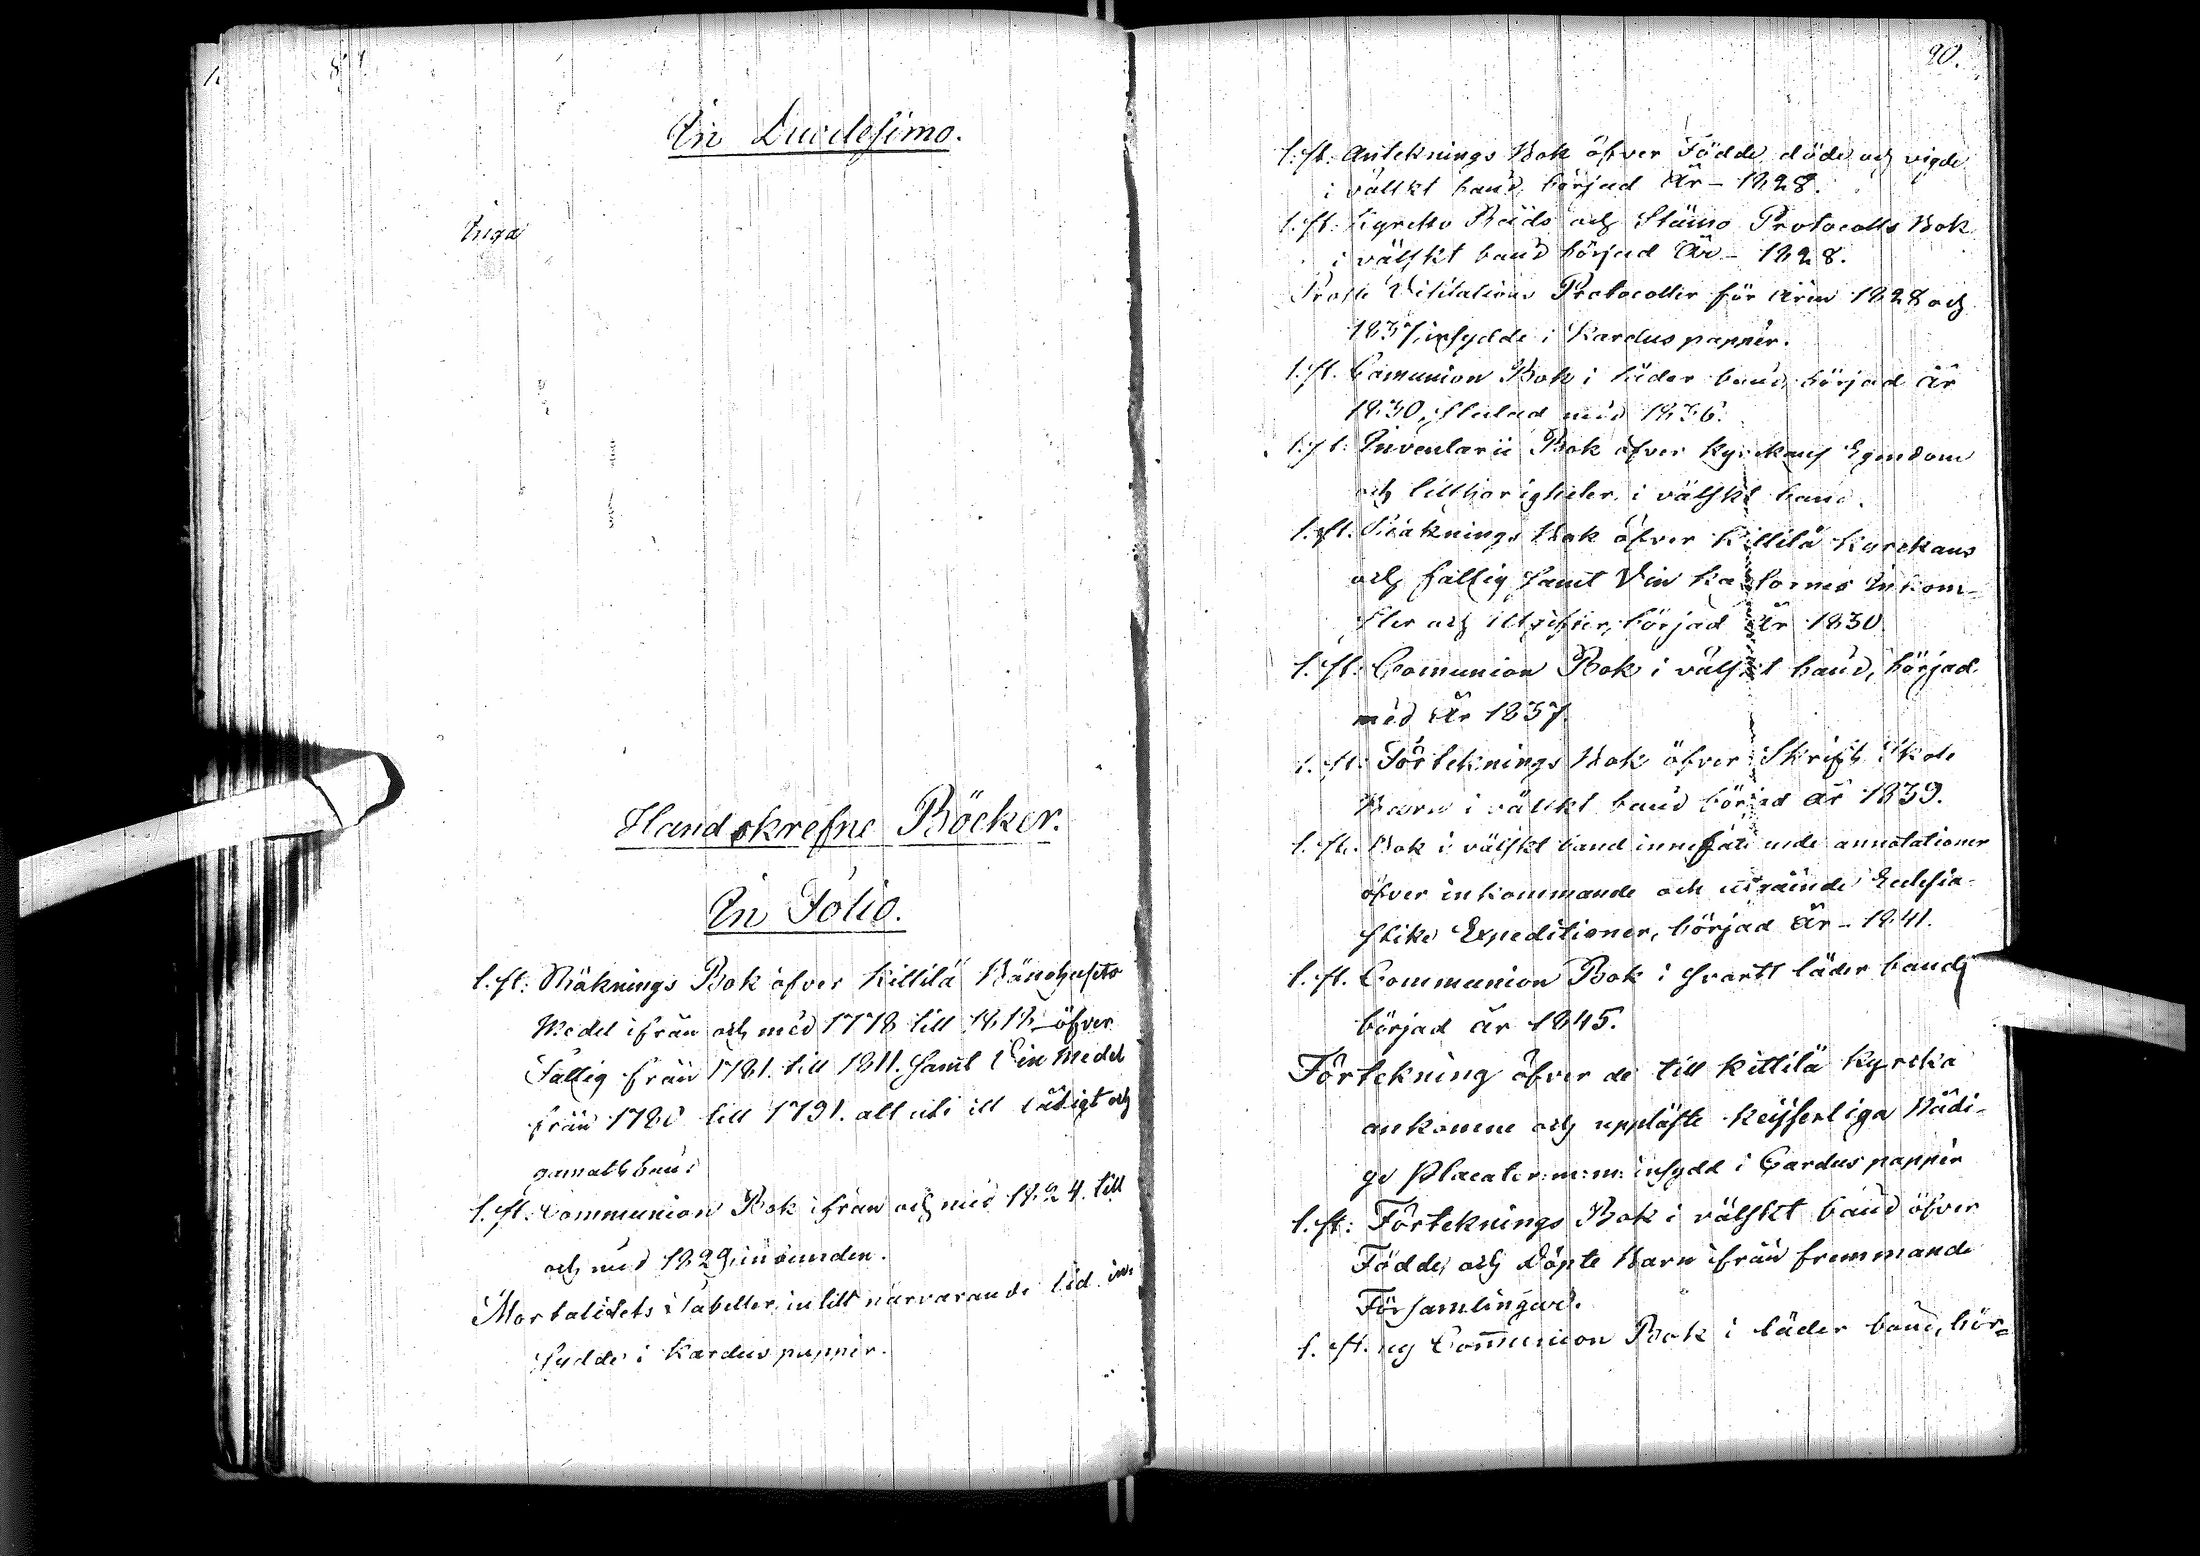 In Duodesimo.
Inga
Handskrefne Böcker.
In Folio.
1. st: Räknings Bok öfver Kittilä Bänehusets
Medel ifrån och med 1778 till 1818 öfver
Fattig från 1781 till 1811. samt Vin Medel
från 1780 till 1791. allt uti ett
gamalt band
1. st: Communion Bok ifrån och med 1824. till
och med 1829, inbunden.
Mortalitets Tabeller in till närvarande tid in-
sydde i Kardus papper.
90.
1. st. Anteknings Bok öfver Födde, döde och vigde
i välskt band, börjad År - 1828.
1. st: Kyrcko Råds och Stämo Protocolls Bok
i välskt band börjad År - 1828.
Proste Visitations Protocoller för åren 1828 och
1837, insydde i Kardus papper.
1. st. Comunion Bok i läder band, börjad år
1830, slutad med 1836.
1. st: Inventarii Bok öfver Kyrckans Egendom
och tillhörigheter, i välskt band.
1. st. Räknings Bok öfver Kittilä Kyrckans
och fattig samt Vin Kassornes Inkom-
ster och utgifter, börjad År 1830.
1. st: Comunion Bok i välskt band, börjad
med År 1837.
1. st: Förteknings Bok öfver Skrift Skole
Barn i välskt band börjad år 1839.
1. st. Bok i välskt band innefattande annotationer
öfver inkommande och utgående Eclesia-
stike Expeditioner, börjad År - 1841.
1. st. Communion Bok i svartt läder band,
börjad år 1845.
Förtekning öfver de till Kittilä Kyrcka
ankomne och uppläste Keijserliga Nådi-
ge Placater m:m: insydd i Cardus papper
1. st: Förteknings Bok i välskt band öfver
Födde och Döpte Barn ifrån fremmande
Församlingar.
1. st. ny Communion Bok i läder band, bör-